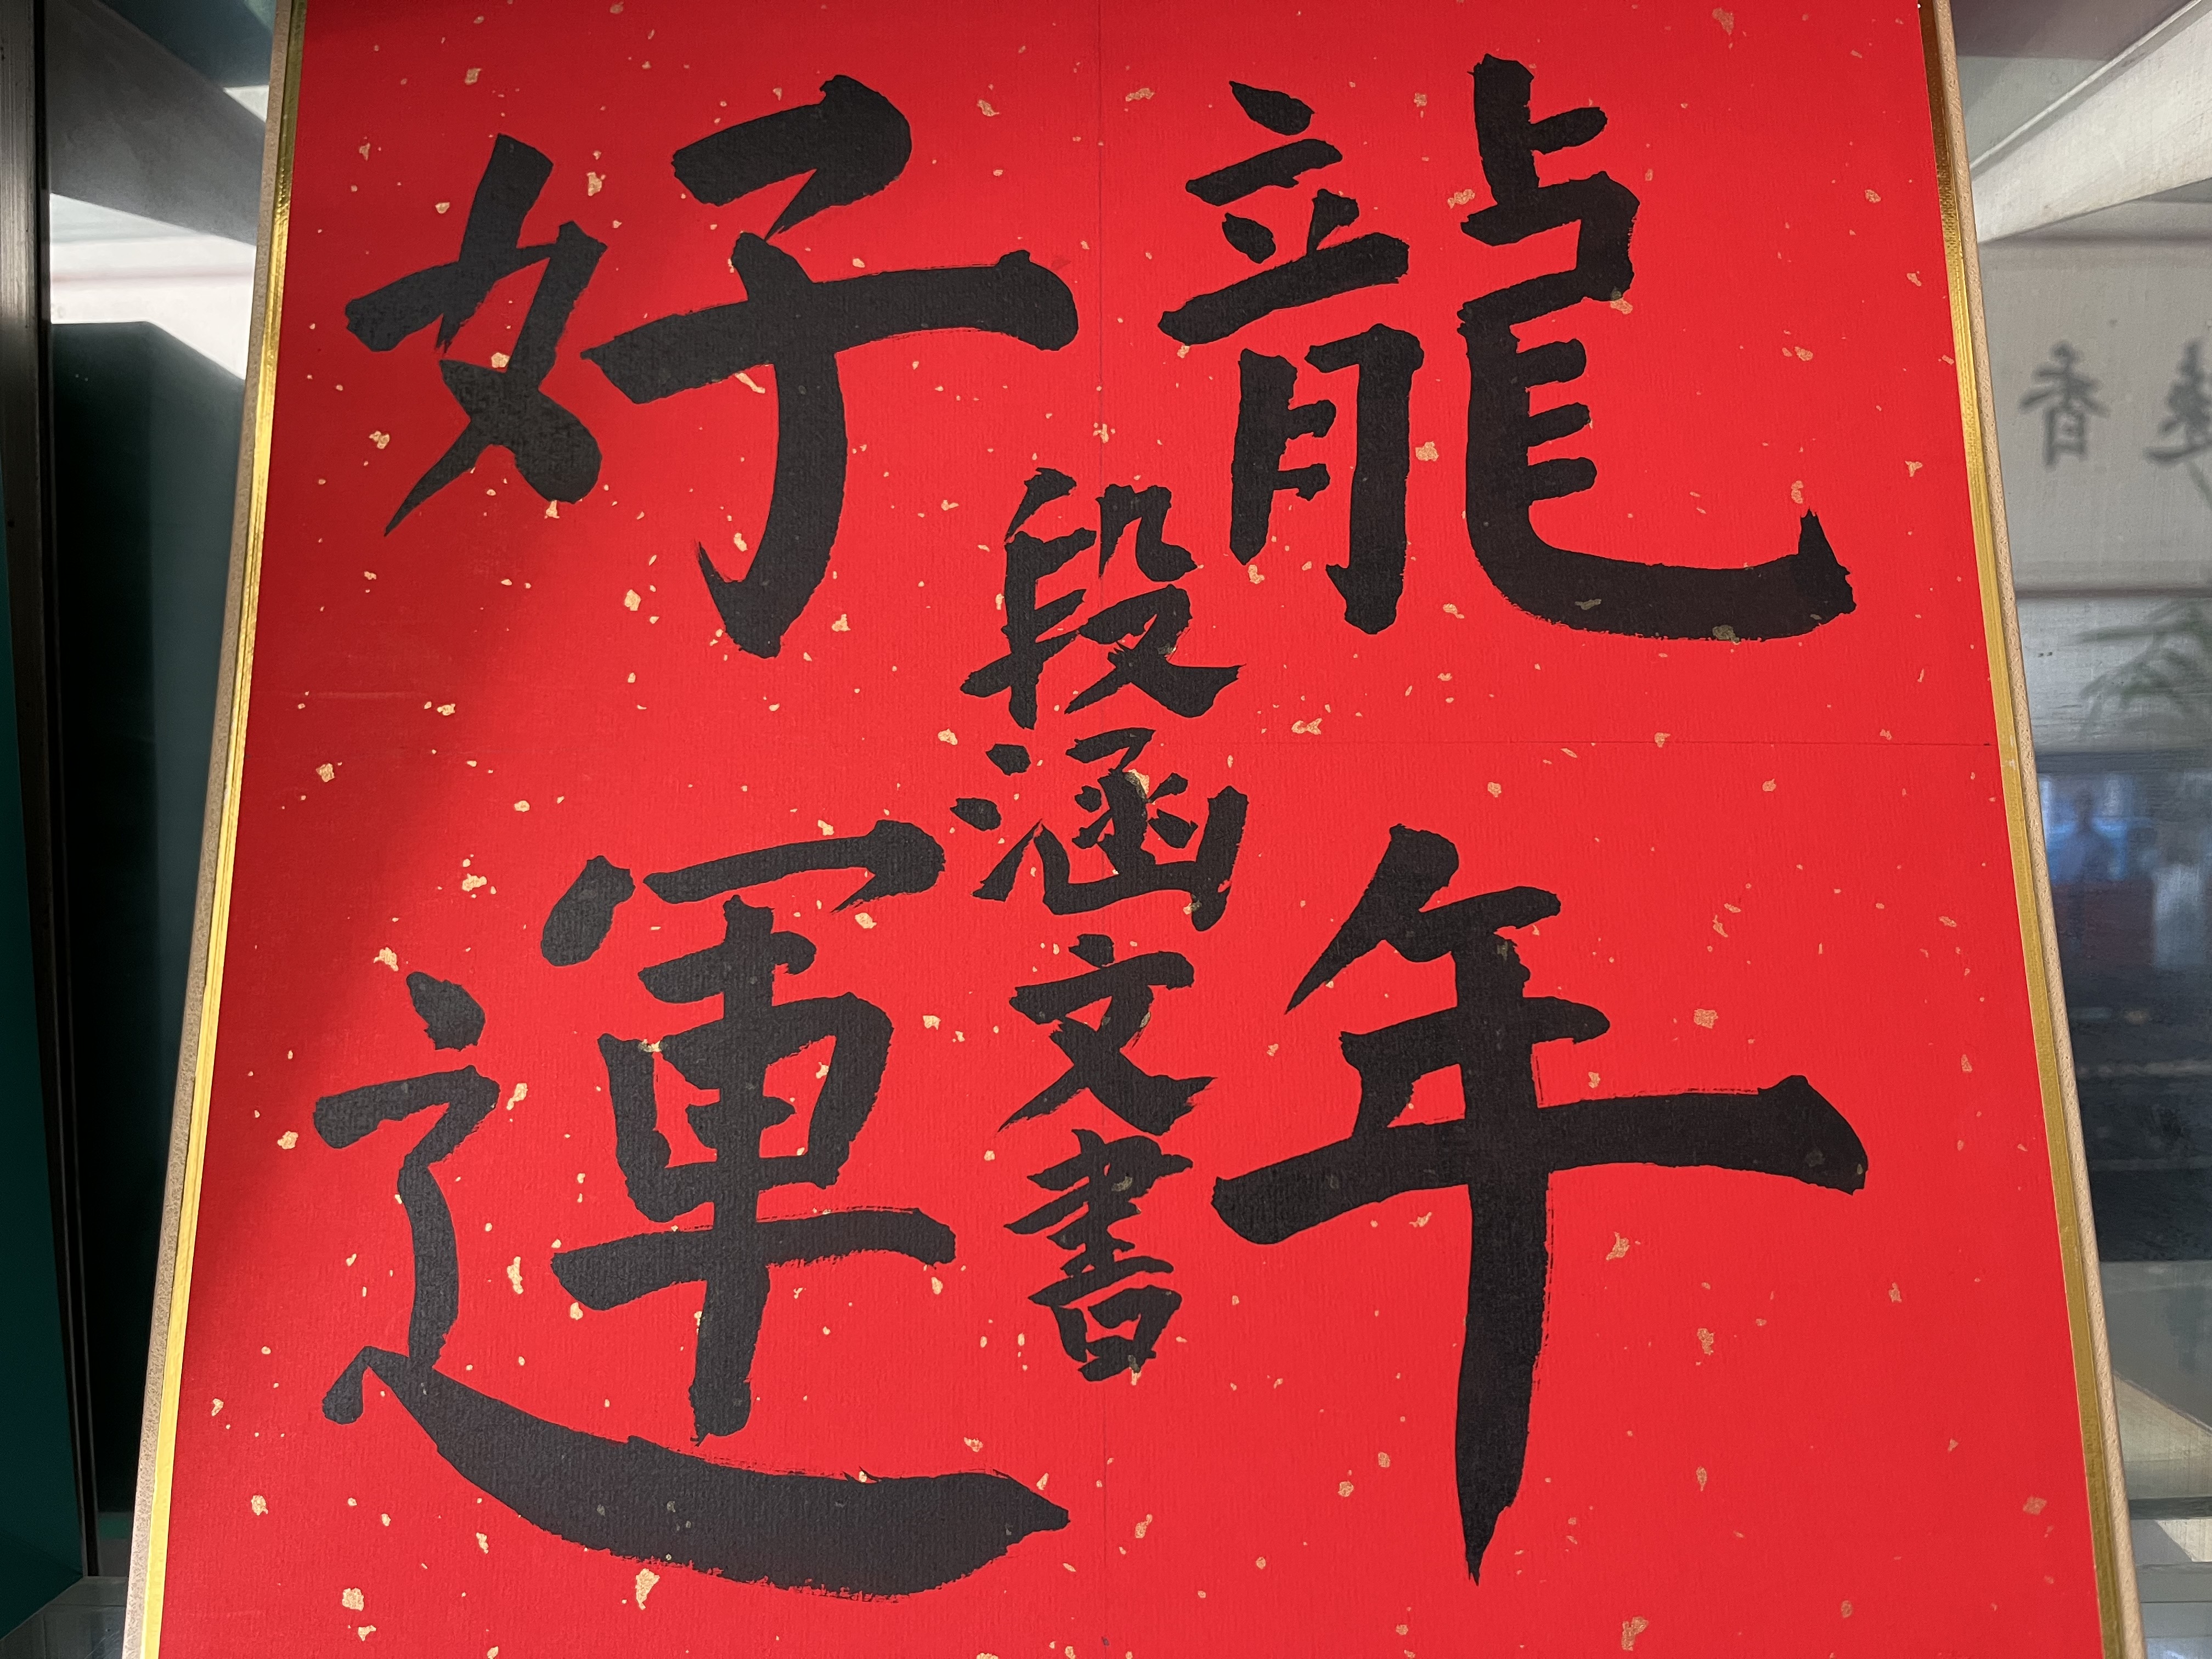 龍年
好運
段涵文書
香